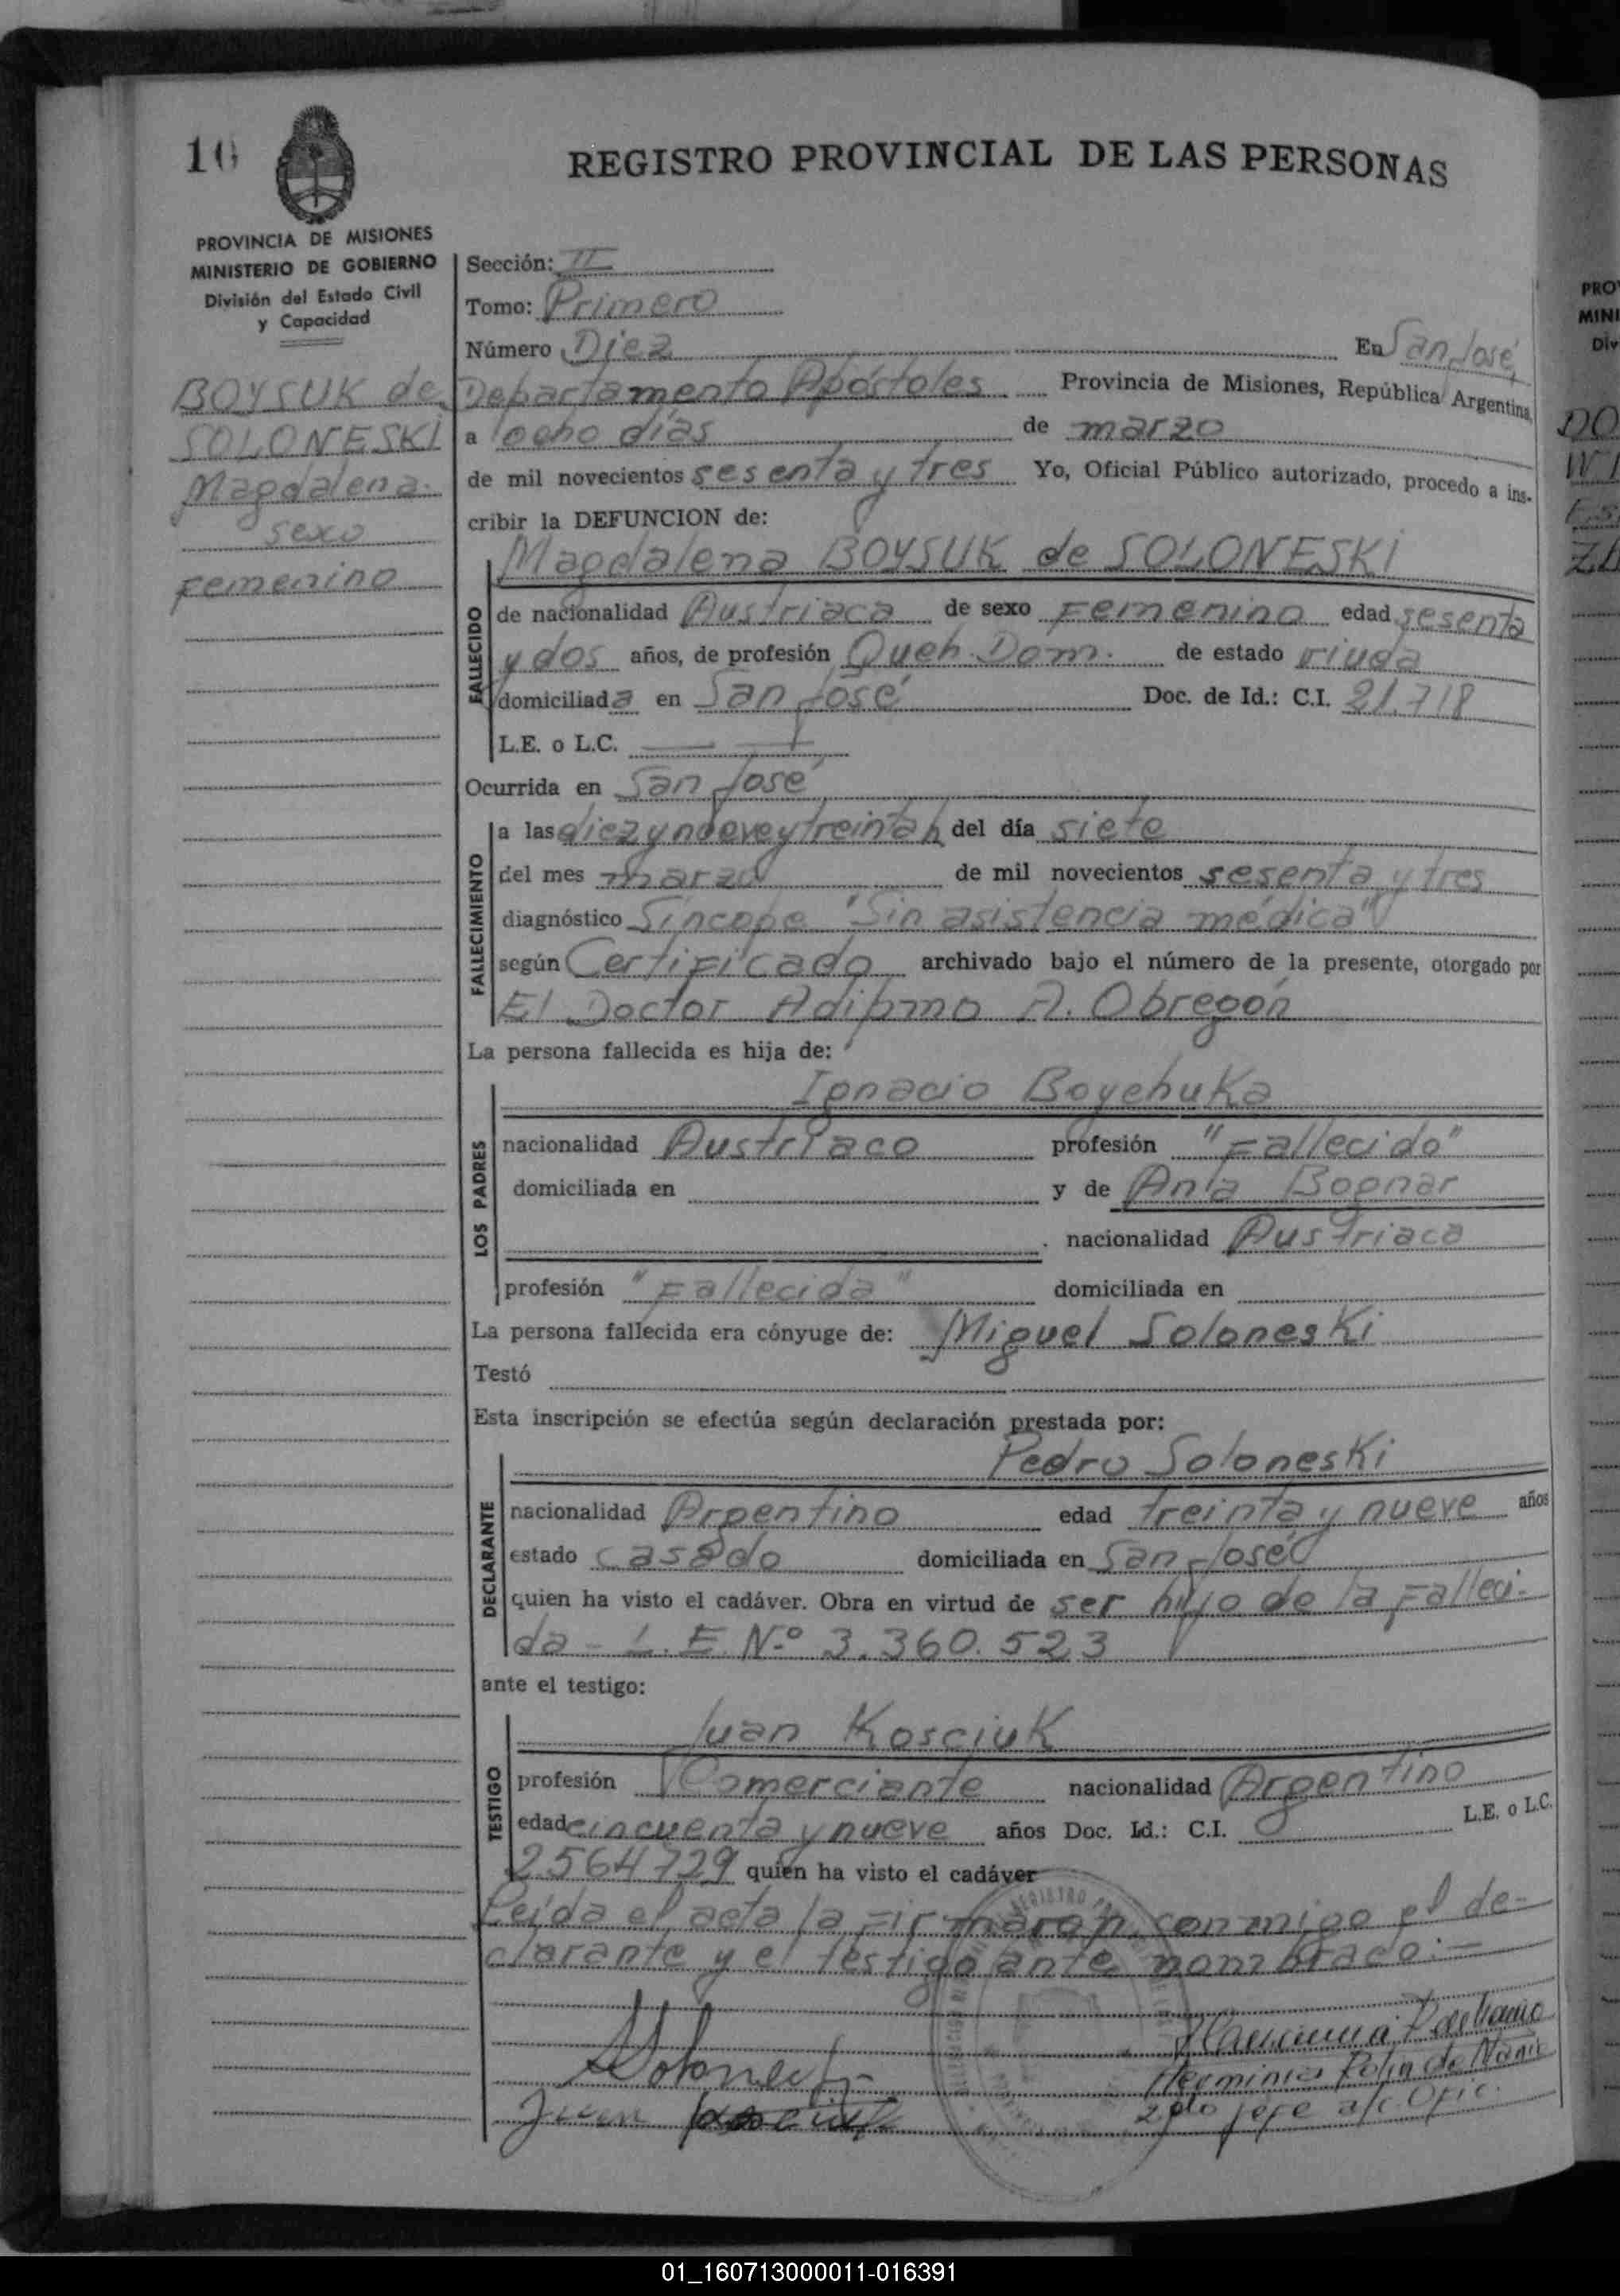 10
REGISTRO PROVINCIAL DE LAS PERSONAS
PROVINCIA DE MISIONES
MINISTERIO DE GOBIERNO
División del Estado Civil
y Capacidad
BOYSUK de
SOLONESKI
Magdalena
sexo
Femenino
Sección: II
Tomo: Primero
Número Diez En San José,
Departamento Apóstoles Provincia de Misiones, República Argentina,
a ocho días de marzo
de mil novecientos sesenta y tres Yo, Oficial Público autorizado, procedo a ins-
cribir la DEFUNCION de:
Magdalena BOYSUK de SOLONESKI
FALLECIDO
de nacionalidad Austriaca de sexo Femenino edad sesenta
y dos años, de profesión Queh. Dom. de estado viuda
domiciliada en San José Doc. de Id.: C.I. 21.718
L.E. o L.C.
Ocurrida en San José
FALLECIMIENTO
a las diez y nueve y treinta h del día siete
del mes marzo de mil novecientos sesenta y tres
diagnóstico Síncope "Sin asistencia médica"
según Certificado archivado bajo el número de la presente, otorgado por
El Doctor A. Obregón
La persona fallecida es hija de:
Ignacio Boychuka
LOS PADRES
nacionalidad Austriaco profesión "Fallecido"
domiciliada en y de Ania Bognar
nacionalidad Austriaca
profesión "Fallecida" domiciliada en
La persona fallecida era cónyuge de: Miguel Soloneski
Testó
Esta inscripción se efectúa según declaración prestada por:
Pedro Soloneski
DECLARANTE
nacionalidad Argentino edad treinta y nueve años
estado casado domiciliada en San José
quien ha visto el cadáver. Obra en virtud de ser hijo de la Falleci-
da - L.E. Nº 3.360.523
ante el testigo:
Juan Kosciuk
TESTIGO
profesión Comerciante nacionalidad Argentino
edad cincuenta y nueve años Doc. Id.: C.I. L.E. o L.C.
2564729 quien ha visto el cadáver
Leída el acta la firmaran conmigo el de-
clarante y el testigo ante nombrado.-
Soloneski
Herminia de
Juan Kosciuk
jefe a/c Ofic.
PRO
MINI
Div
01_160713000011-016391